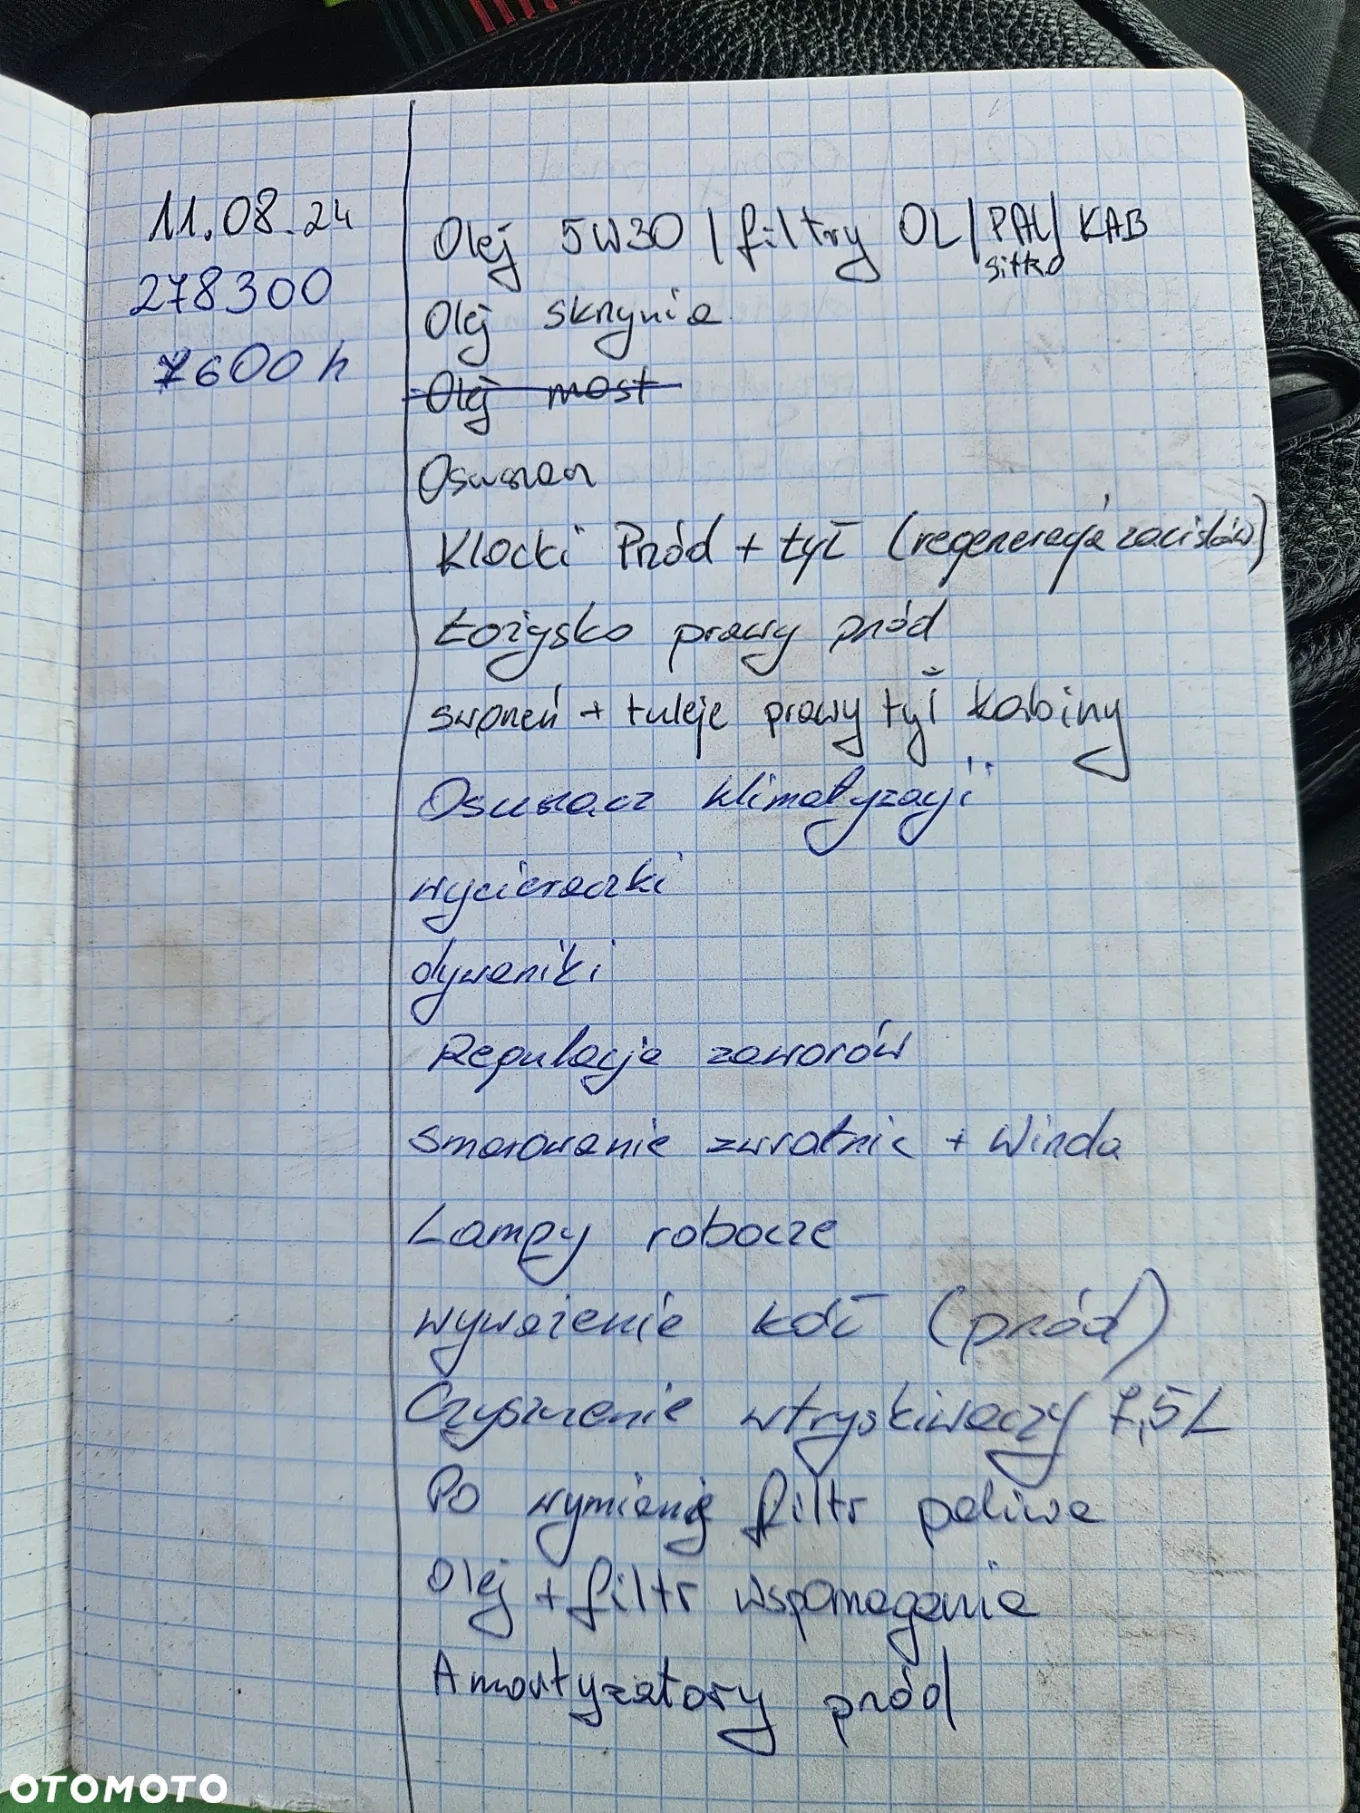 11.08.24
278300
7600 h
Olej 5W30 / filtry OL / PAL / KAB
sitko
Olej skrzynia
Olej most
Osuszacz
Klocki Przód + tył (regeneracja zacisków)
Łożysko prawy przód
sworzeń + tuleje prawy tył kabiny
Osuszacz klimatyzacji
wycieraczki
dywaniki
Regulacja zaworów
smarowanie zwrotnic + Winda
Lampy robocze
wyważenie kół (przód)
Czyszczenie wtryskiwaczy 7,5L
Po wymianie filtr paliwa
Olej + filtr wspomagania
Amortyzatory przód
OTOMOTO